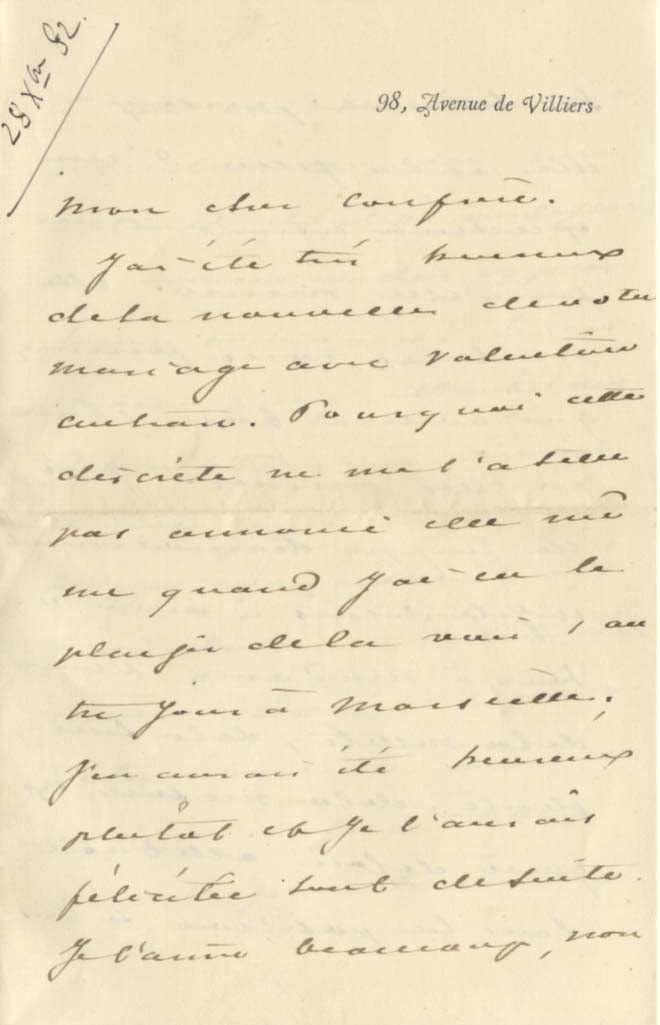 28 Xbre 82.
98, Avenue de Villiers
Mon cher confrère.
J'ai été très heureux
de la nouvelle de votre
mariage avec Valentine
Autran. Pourquoi cette
discrète ne me l'a t elle
pas annoncé elle mê
me quand j'ai eu le
plaisir de la voir l'au
tre jour à Marseille.
J'en aurais été heureux
plutôt et je l'aurais
félicitée tout de suite.
Je l'aime beaucoup, non